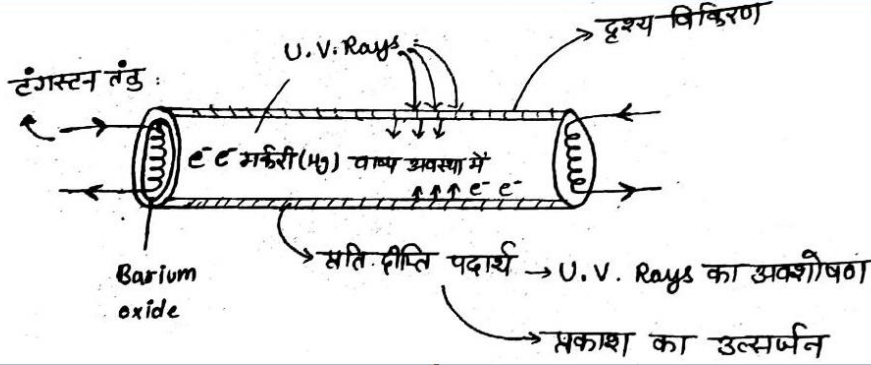 दृश्य विकिरण
U.V. Rays
टंगस्टन तंतु :
e⁻ e⁻ मर्करी (Hg) वाष्प अवस्था में
e⁻ e⁻
Barium
oxide
प्रतिदीप्ति पदार्थ → U.V. Rays का अवशोषण
प्रकाश का उत्सर्जन